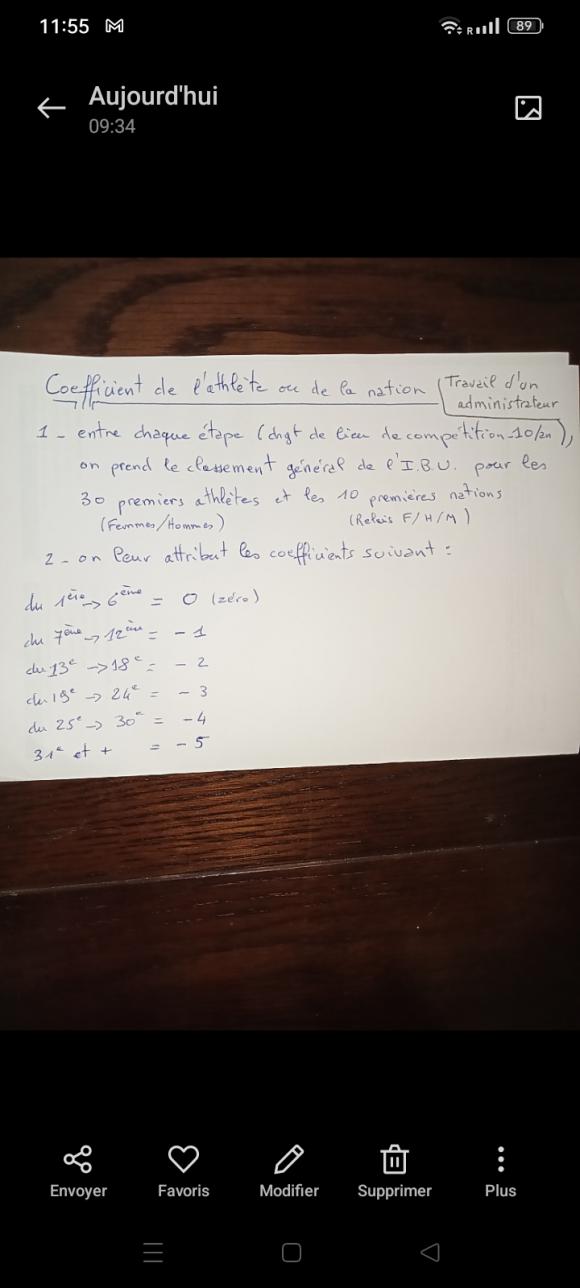 11:55
R
89
Aujourd'hui
09:34
Coefficient de l'athlète ou de la nation
Travail d'un
administrateur
1 - entre chaque étape (chgt de lieu de compétition 10/an),
on prend le classement général de l'I.B.U. pour les
30 premiers athlètes et les 10 premières nations
(Femmes/Hommes) (Relais F/H/M)
2 - on leur attribut les coefficients suivant :
du 1ère → 6ème = 0 (zéro)
du 7ème → 12ème = - 1
du 13e → 18e = - 2
du 19e → 24e = - 3
du 25e → 30e = - 4
31e et + = - 5
Envoyer
Favoris
Modifier
Supprimer
Plus